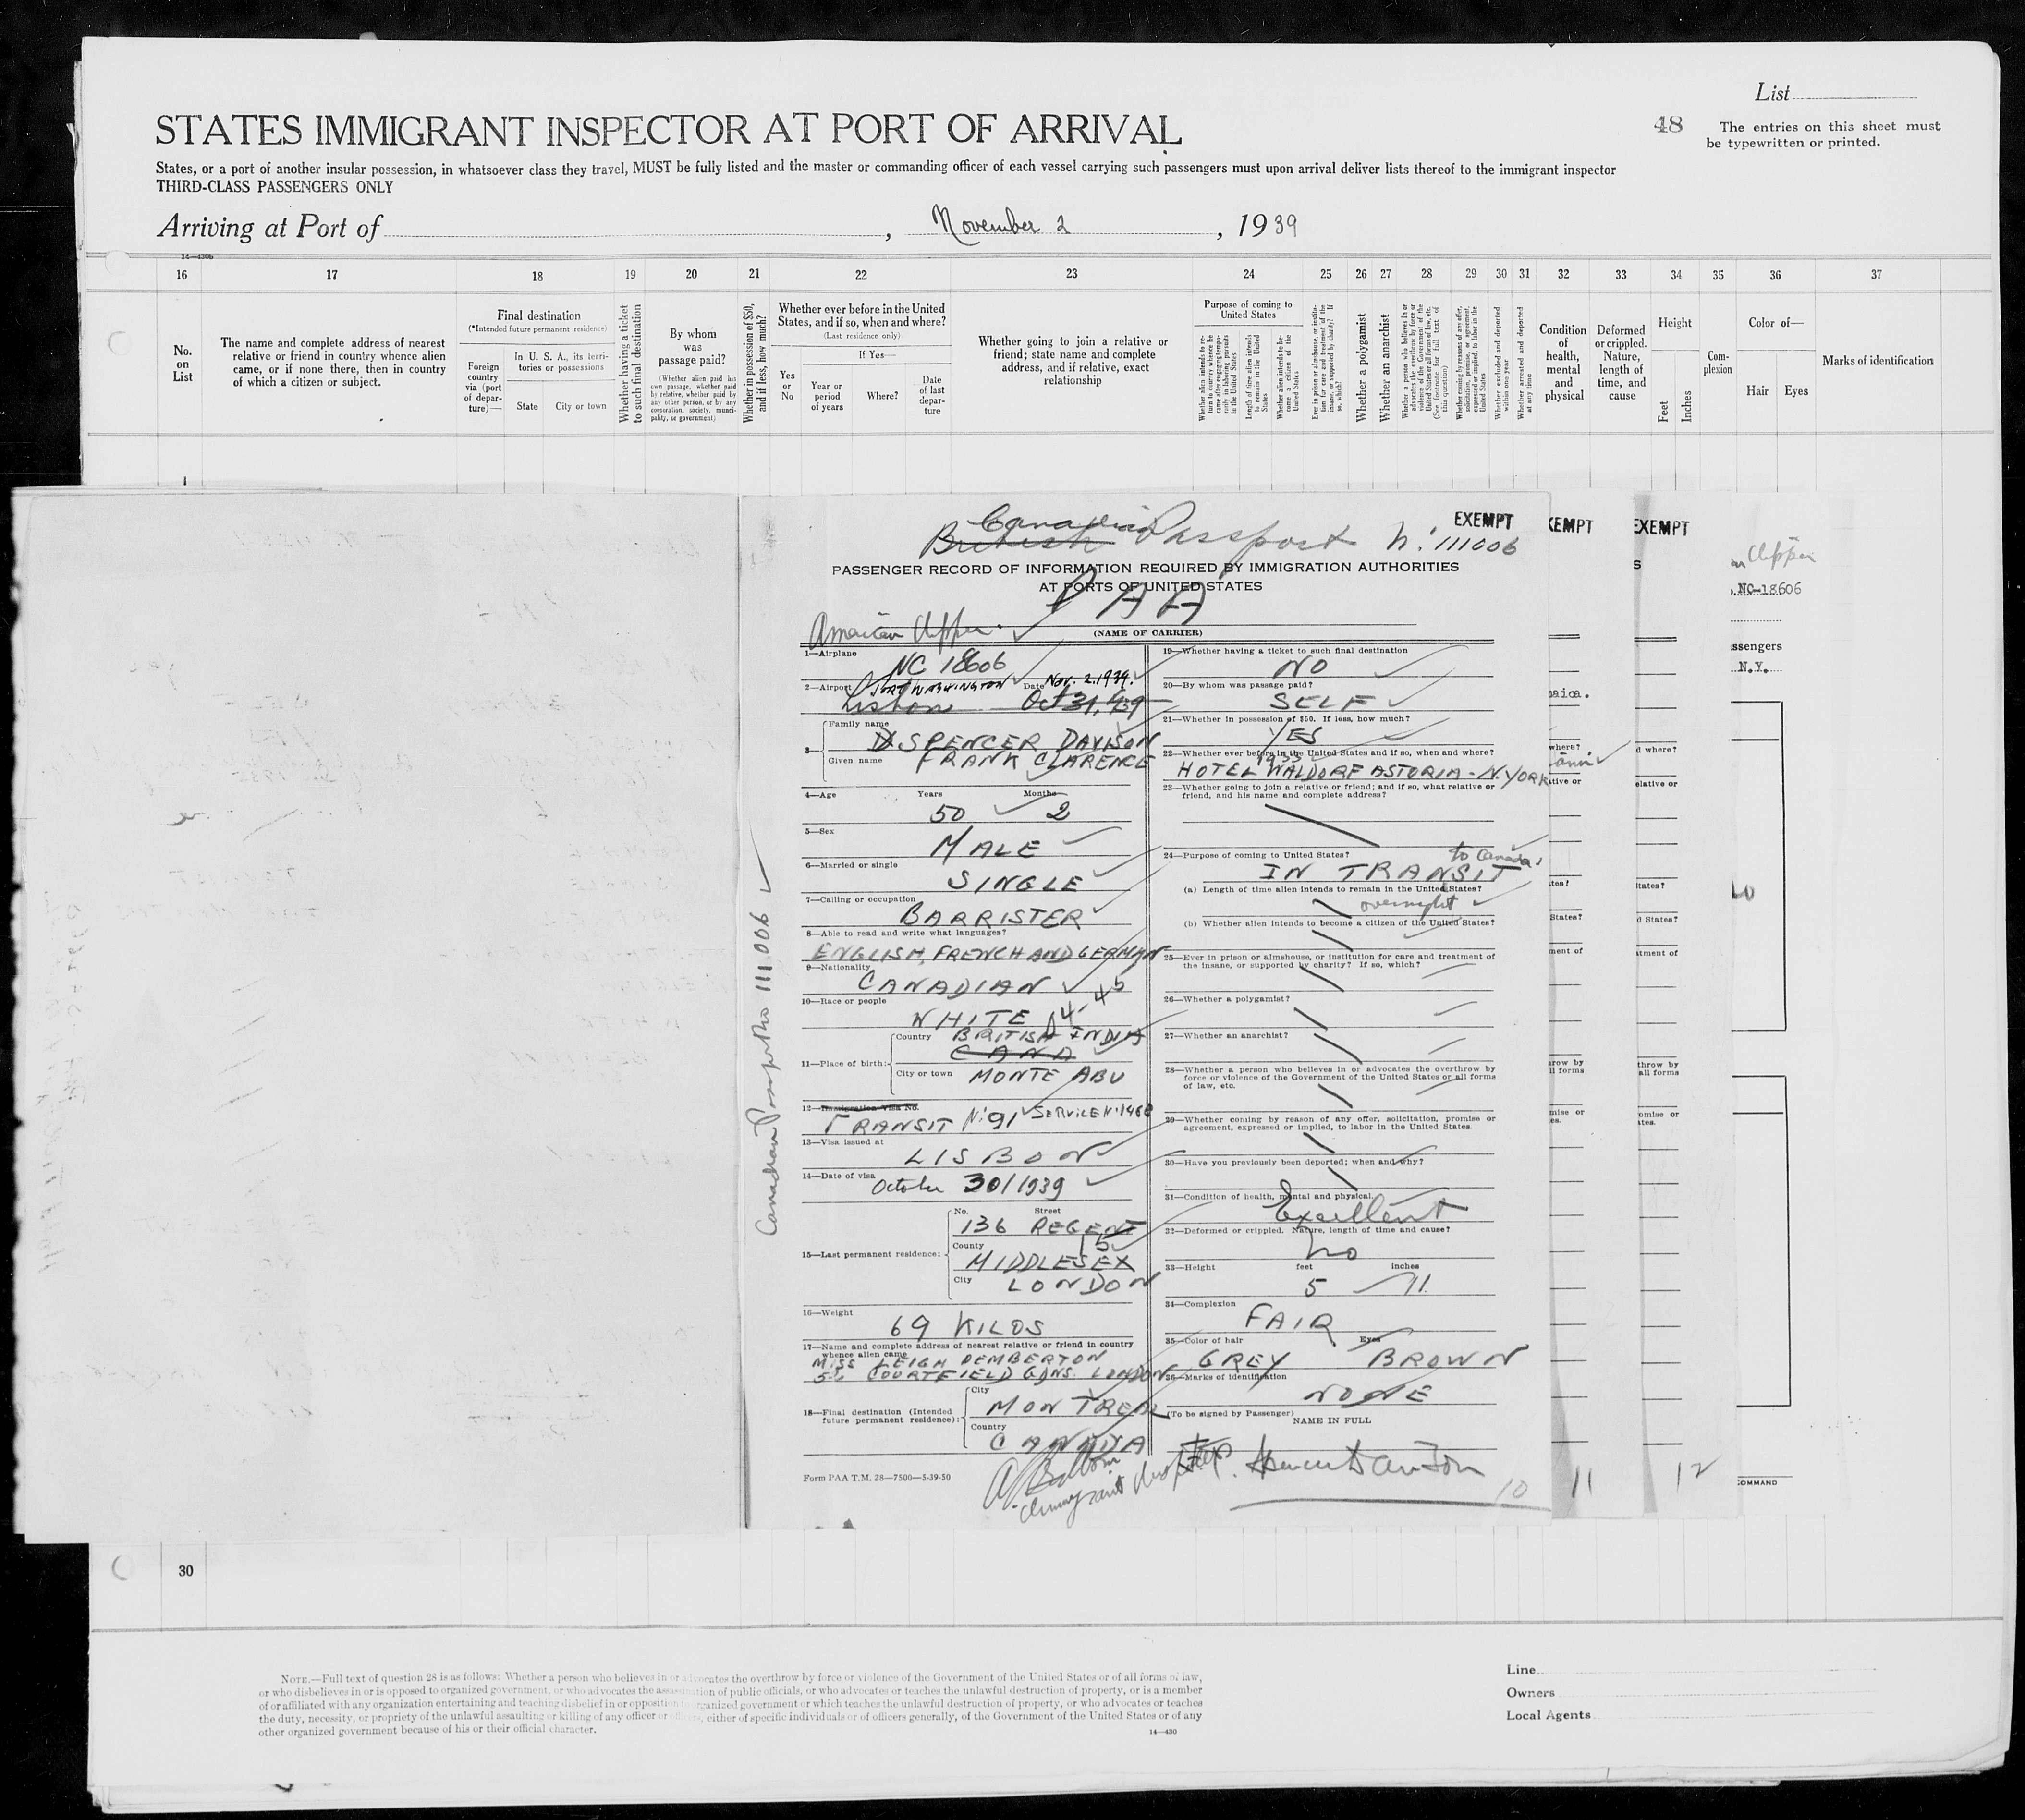 List
STATES IMMIGRANT INSPECTOR AT PORT OF ARRIVAL
48
The entries on this sheet must
be typewritten or printed.
States, or a port of another insular possession, in whatsoever class they travel, MUST be fully listed and the master or commanding officer of each vessel carrying such passengers must upon arrival deliver lists thereof to the immigrant inspector
THIRD-CLASS PASSENGERS ONLY
Arriving at Port of , November 2 , 1939
14—430b
16 17 18 19 20 21 22 23 24 25 26 27 28 29 30 31 32 33 34 35 36 37
No.
on
List
The name and complete address of nearest
relative or friend in country whence alien
came, or if none there, then in country
of which a citizen or subject.
Final destination
(*Intended future permanent residence)
Foreign
country
via (port
of depar-
ture)—
In U. S. A., its terri-
tories or possessions
State
City or town
Whether having a ticket
to such final destination
By whom
was
passage paid?
(Whether alien paid his
own passage, whether paid
by relative, whether paid by
any other person, or by any
corporation, society, munici-
pality, or government)
Whether in possession of $50,
and if less, how much?
Whether ever before in the United
States, and if so, when and where?
(Last residence only)
If Yes—
Yes
or
No
Year or
period
of years
Where?
Date
of last
depar-
ture
Whether going to join a relative or
friend; state name and complete
address, and if relative, exact
relationship
Purpose of coming to
United States
Whether alien intends to re-
turn to country whence he
came after engaging tempo-
rarily in laboring pursuits
in the United States
Length of time alien intends
to remain in the United
States
Whether alien intends to be-
come a citizen of the
United States
Ever in prison or almshouse, or institu-
tion for care and treatment of the
insane, or supported by charity? If
so, which?
Whether a polygamist
Whether an anarchist
Whether a person who believes in or
advocates the overthrow by force or
violence of the Government of the
United States or all forms of law, etc.
(See footnote for full text of
this question)
Whether coming by reasons of any offer,
solicitation, promise, or agreement,
expressed or implied, to labor in the
United States
Whether excluded and deported
within one year
Whether arrested and deported
at any time
Condition
of
health,
mental
and
physical
Deformed
or crippled.
Nature,
length of
time, and
cause
Height
Feet
Inches
Com-
plexion
Color of—
Hair
Eyes
Marks of identification
1
Canadian Passport No 111006
EXEMPT
Canadian
British Passport N. 111006
PASSENGER RECORD OF INFORMATION REQUIRED BY IMMIGRATION AUTHORITIES
AT PORTS OF UNITED STATES
P A A
American Clipper
(NAME OF CARRIER)
1—Airplane NC 18606
2—Airport PORT WASHINGTON Date Nov. 2. 1939.
Lisbon Oct 31, 39
3— Family name SPENCER DAVISON
Given name FRANK CLARENCE
4—Age Years 50 Months 2
5—Sex MALE
6—Married or single SINGLE
7—Calling or occupation BARRISTER
8—Able to read and write what languages?
ENGLISH, FRENCH AND GERMAN
9—Nationality CANADIAN
4-45
10—Race or people WHITE
11—Place of birth: Country BRITISH INDIA
CANA
City or town MONTE ABU
12—Immigration Visa No.
TRANSIT No. 91 SERVICE N. 1468
13—Visa issued at LISBON
14—Date of visa October 30/1939
15—Last permanent residence: No. Street
136 REGENT
County 15
MIDDLESEX
City LONDON
16—Weight 69 KILOS
17—Name and complete address of nearest relative or friend in country
whence alien came
MISS LEIGH PEMBERTON
COURTFIELD GDNS. LONDON
18—Final destination (Intended
future permanent residence):
City MONTREAL
Country CANADA
Form PAA T.M. 28—7500—5-39-50
19—Whether having a ticket to such final destination
NO
20—By whom was passage paid?
SELF
21—Whether in possession of $50. If less, how much?
YES
22—Whether ever before in the United States and if so, when and where?
HOTEL WALDORF ASTORIA - N. YORK
23—Whether going to join a relative or friend; and if so, what relative or
friend, and his name and complete address?
24—Purpose of coming to United States? to Canada.
IN TRANSIT
(a) Length of time alien intends to remain in the United States?
overnight
(b) Whether alien intends to become a citizen of the United States?
25—Ever in prison or almshouse, or institution for care and treatment of
the insane, or supported by charity? If so, which?
26—Whether a polygamist?
27—Whether an anarchist?
28—Whether a person who believes in or advocates the overthrow by
force or violence of the Government of the United States or all forms
of law, etc.
29—Whether coming by reason of any offer, solicitation, promise or
agreement, expressed or implied, to labor in the United States.
30—Have you previously been deported; when and why?
31—Condition of health, mental and physical.
Excellent
32—Deformed or crippled. Nature, length of time and cause?
no
33—Height feet inches
5 11
34—Complexion
FAIR
35—Color of hair Eyes
GREY BROWN
36—Marks of identification
NONE
(To be signed by Passenger)
NAME IN FULL
Spencer Davison
Immigrant Inspector
10
EMPT
where?
ative or
tes?
States?
ment of
row by
ll forms
mise or
es.
11
EXEMPT
S
d where?
elative or
tates?
d States?
tment of
throw by
all forms
omise or
ates.
12
Clipper
NC-18606
ssengers
N.Y.
aica.
COMMAND
30
NOTE.—Full text of question 28 is as follows: Whether a person who believes in or advocates the overthrow by force or violence of the Government of the United States or of all forms of law,
or who disbelieves in or is opposed to organized government, or who advocates the assassination of public officials, or who advocates or teaches the unlawful destruction of property, or is a member
of or affiliated with any organization entertaining and teaching disbelief in or opposition to organized government or which teaches the unlawful destruction of property, or who advocates or teaches
the duty, necessity, or propriety of the unlawful assaulting or killing of any officer or officers, either of specific individuals or of officers generally, of the Government of the United States or of any
other organized government because of his or their official character.
14—430
Line
Owners
Local Agents